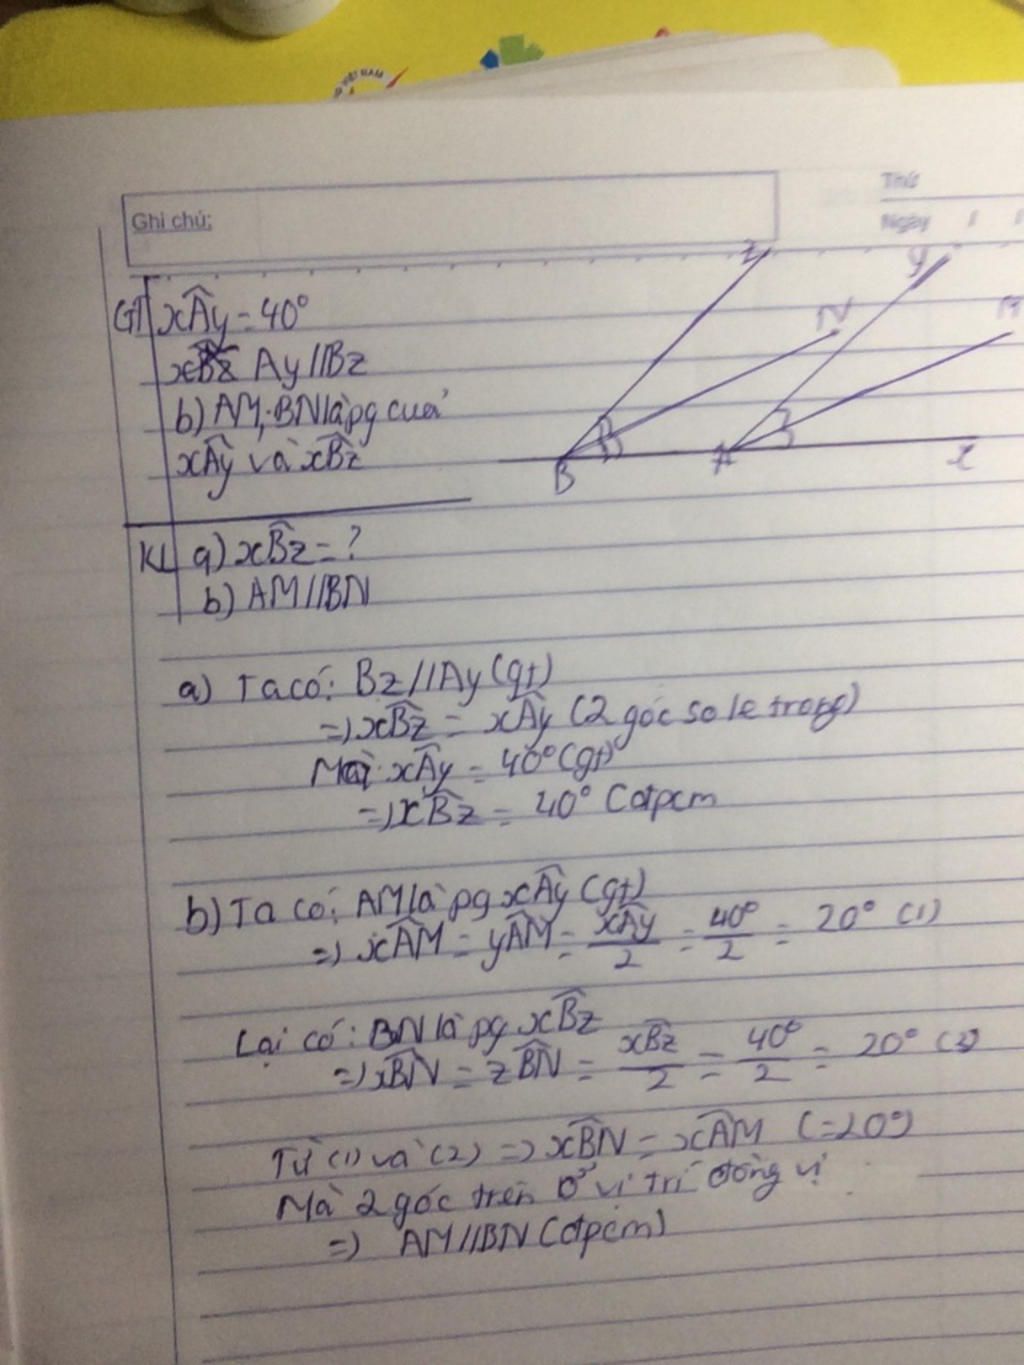 VIỆT NAM
Ghi chú:
Thứ
Ngày / /
GT xÂy = 40°
Ay // Bz
b) AM, BN là pg của
xÂy và xB̂z
KL a) xB̂z = ?
b) AM // BN
z
y
N
M
B
A
x
a) Ta có: Bz // Ay (gt)
=) xB̂z = xÂy (2 góc so le trong)
Mà xÂy = 40° (gt)
=) xB̂z = 40° (đpcm
b) Ta có: AM là pg xÂy (gt)
=) xÂM = yÂM = xÂy/2 = 40°/2 = 20° (1)
Lại có: BN là pg xB̂z
=) xB̂N = zB̂N = xB̂z/2 = 40°/2 = 20° (2)
Từ (1) và (2) =) xB̂N = xÂM (=20°)
Mà 2 góc trên ở vị trí đồng vị
=) AM // BN (đpcm)